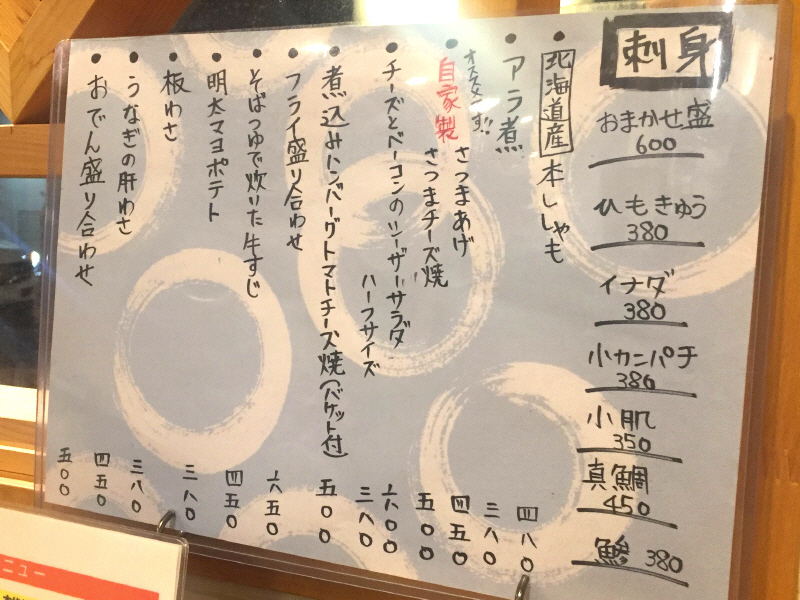 刺身
おまかせ盛
600
ひもきゅう
380
イナダ
380
小カンパチ
380
小肌
350
真鯛
450
鯵 380
北海道産 本ししゃも 四八〇
アラ煮 三八〇
オススメです!!
自家製 さつまあげ 四五〇
さつまチーズ焼 五〇〇
チーズとベーコンのシーザーサラダ 六〇〇
ハーフサイズ 三八〇
煮込みハンバーグトマトチーズ焼(バケット付) 五〇〇
フライ盛り合わせ 六五〇
そばつゆで炊いた牛すじ 四五〇
明太マヨポテト
板わさ 三八〇
うなぎの肝わさ 三八〇
おでん盛り合わせ 四五〇
五〇〇
ニュー